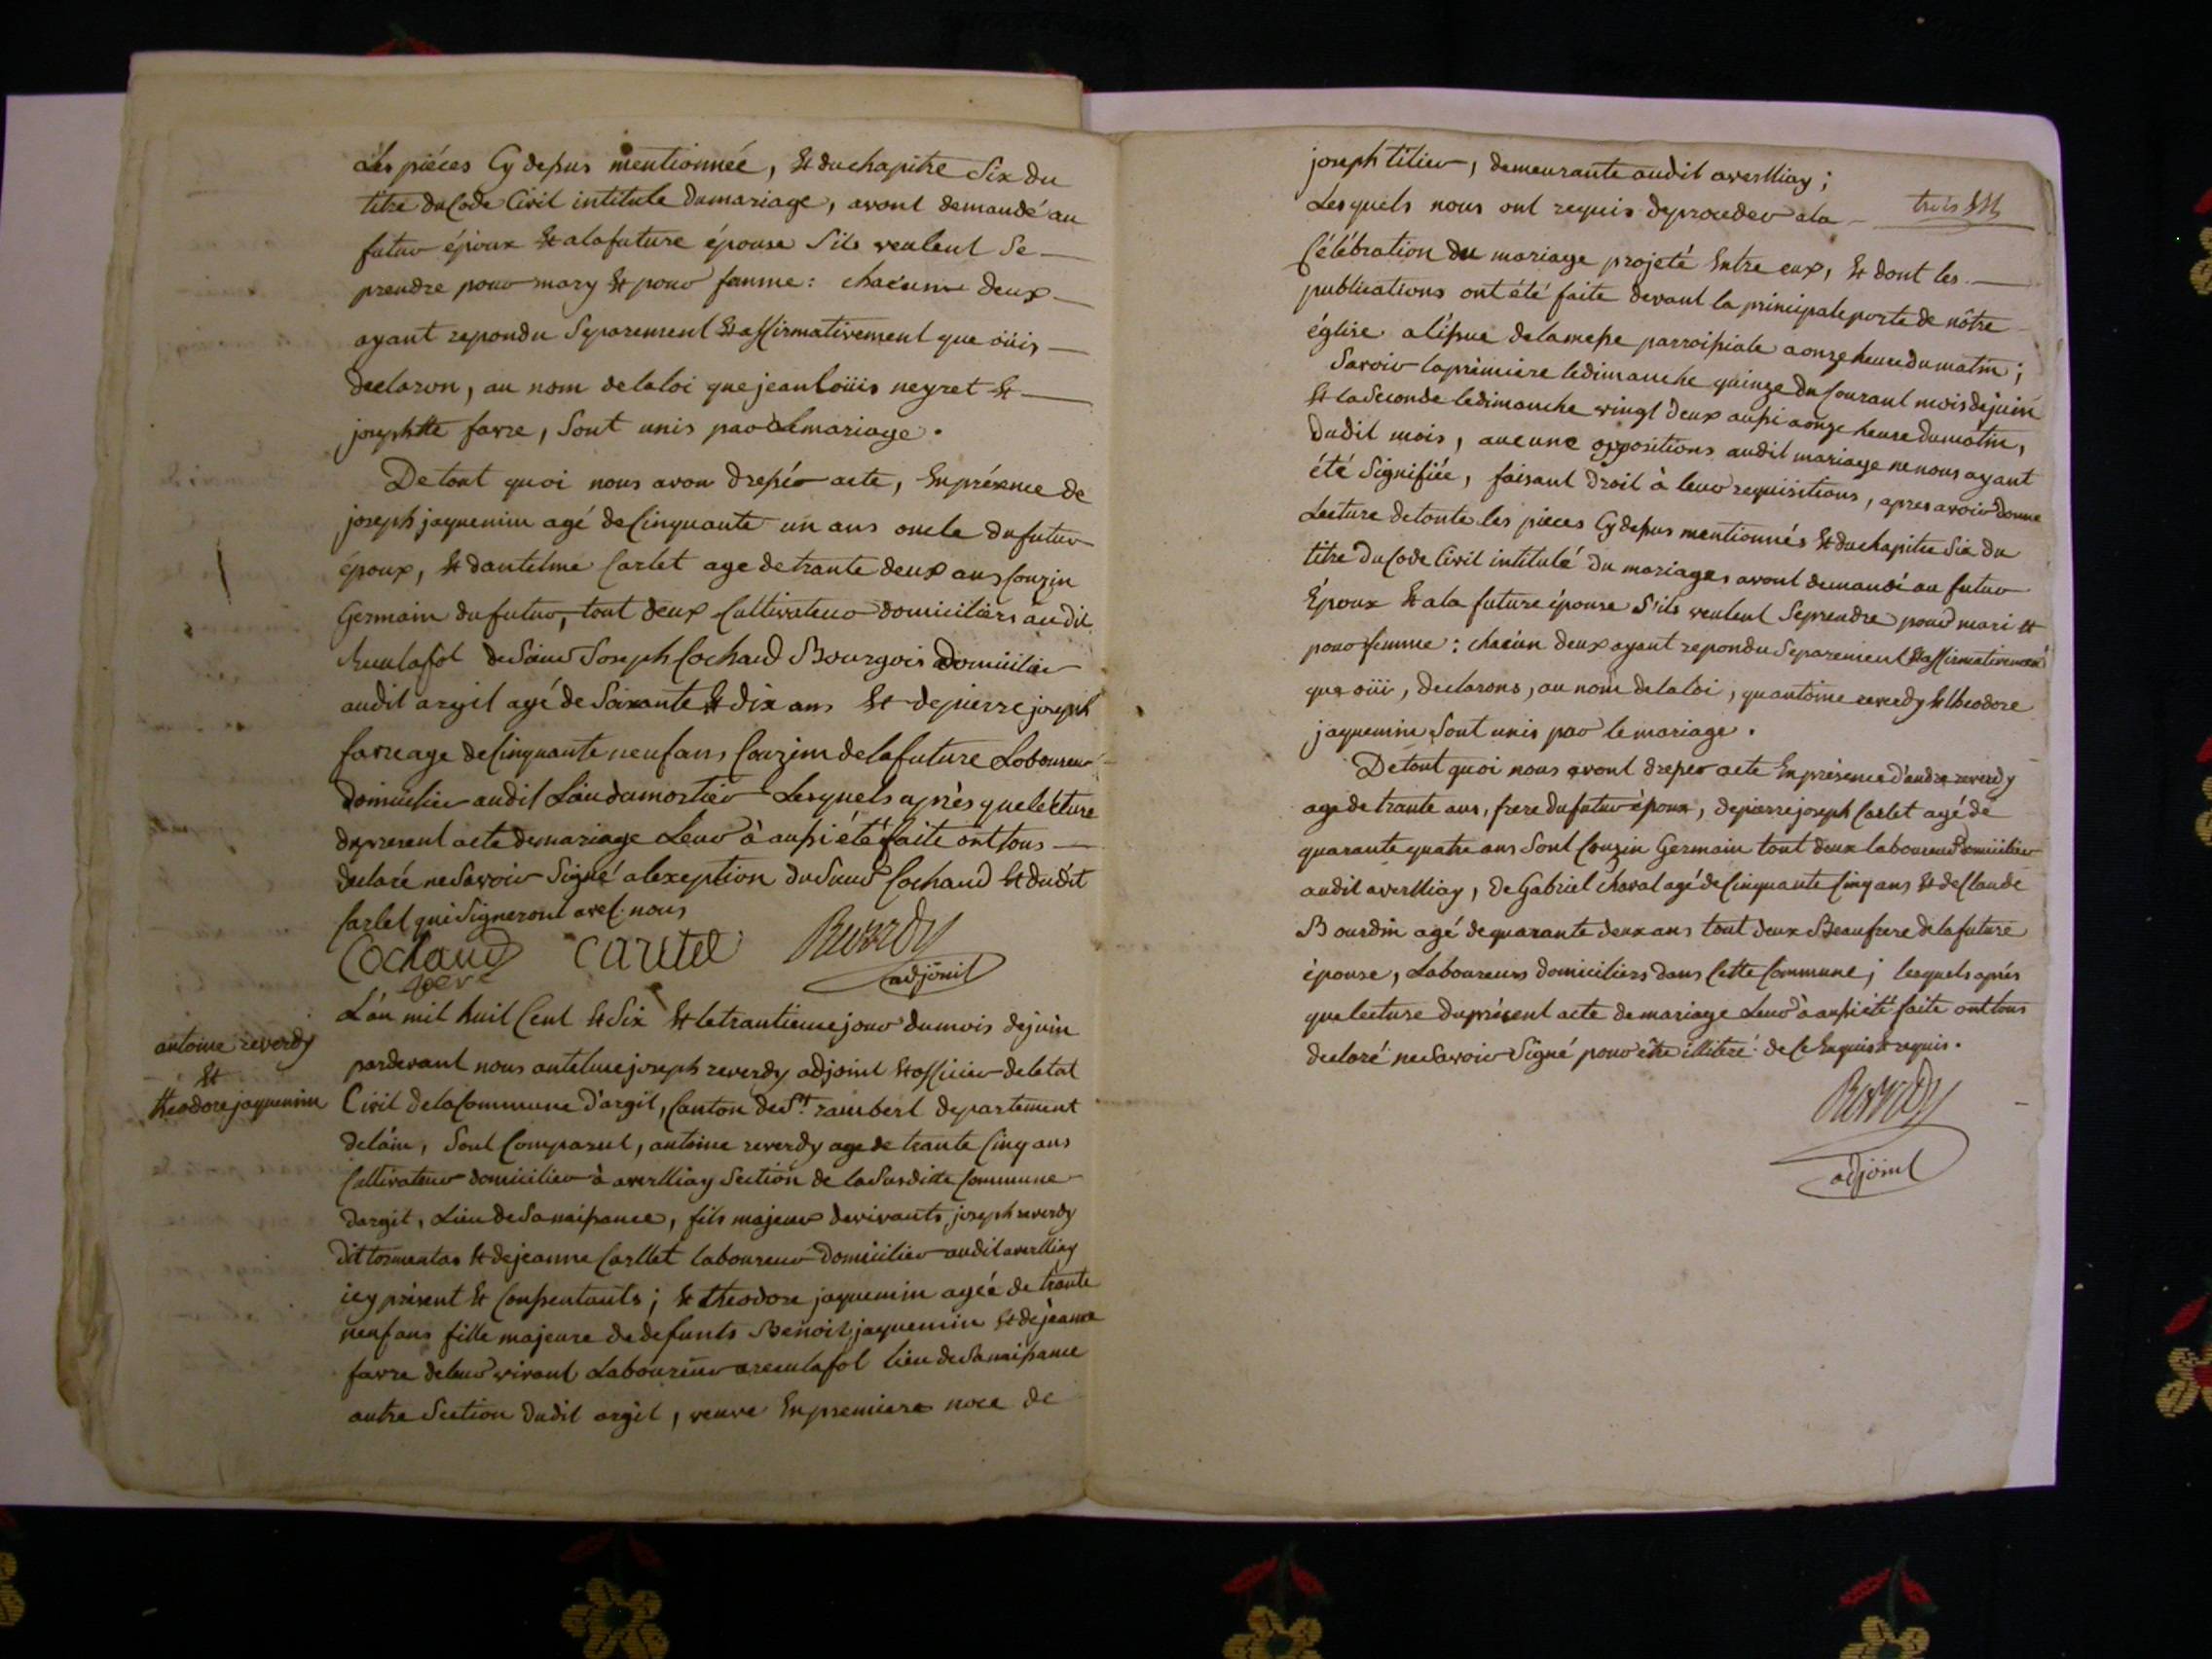 dès pièces Cy dessus mentionnée, Et du chapitre Six du
titre du Code Civil intitule du mariage, avont demandé au
futur époux Et a la future épouse S'ils veulent Se
prendre pour mary Et pour femme : chacunn deux
ayant repondu Separement Et affirmativement que oüis
declaron, au nom de la loi que jean loüis neyret Et
josephtte favre, Sont unis par le mariage.
De tout quoi nous avon dressér acte, En présence de
joseph jaquemin agé de Cinquante un ans oncle du futur
époux, Et dantelme Carlet age de trante deux ans Couzin
Germain du futur, tout deux Cultivateur domiciliers audit
reculafol de Sieur Joseph Cochaud Bourgois domicilier
audit argit agé de Soixante Et dix ans Et de pierre joseph
favre age de Cinquante neuf ans Couzin de la future Laboureur
domicilier audit Lieu du mortier Lesquels après que lécture
du present acte de mariage Leur à aussi été faite ont tous
declaré ne Savoir Signé a lexeption du Sieur Cochaud Et dudit
Carlet qui Signeront avec nous
Cochaud carlet Reverdy
adjoint
L'an mil huit Cent Et Six Et le trantieme jour du mois de juin
antoine reverdy
Et
theodore jaquemin
pardevant nous antelme joseph reverdy adjoint Et officier de l'etat
Civil de la Commune d'argit, Canton de St. rambert departement
de l'ain, Sont Comparut, antoine reverdy age de trante Cinq ans
Cultivateur domicilier à averlliay Section de la Susditte Commune
dargit, Lieu de Sa naissance, fils majeur de vivants joseph reverdy
dit tormentas Et de jeanne Carllet laboureur domicilier audit averlliay
icy présent Et Conssentants ; Et theodore jaquemin agéé de trante
neuf ans fille majeure de defunts Benoit jaquemin Et de jeanne
favre de leur vivant Laboureur a reculafol lieu de Sa naissance
autre Section dudit argit, veuve En premiere noce de
joseph titier, demeurante audit averlliay ;
trois
Lesquels nous ont requis de proceder a la
Célébration du mariage projeté Entre eux, Et dont les
publications ont été faite devant la principale porte de nôtre
église a l'issue de la messe parroissiale a onze heure du matin ;
Savoir la prémiere le dimanche quinze du Courant mois de juin
Et la Seconde le dimanche vingt deux aussi a onze heure du matin,
dudit mois, aucune oppositions audit mariage ne nous ayant
été Signifiée, faisant droit à leur requisitions, apres avoir donné
Lecture de toute les pieces Cy dessus mentionnés Et du chapitre Six du
titre du Code Civil intitulé du mariages avont demandé au futur
Époux Et a la future épouse S'ils veulent Se prendre pour mari Et
pour femme : chacun deux ayant repondu Separement Et affirmativement
que oüi, declarons, au nom de la loi, qu antoine reverdy Et theodore
jaquemin Sont unis par le mariage.
De tout quoi nous avont dresser acte En présence d'andre reverdy
age de trante ans, frere du futur époux, de pierre joseph Carlet agé de
quarante quatre ans Sont Couzin Germain tout deux laboureur domicilier
audit averlliay, de Gabriel charal agé de Cinquante Cinq ans Et de Claude
Bourdin agé de quarante deux ans tout deux Beaufrere de la future
épouse, Laboureurs domiciliers dans Cette Commune ; lesquels aprés
que lecture du présent acte de mariage Leur à aussi été faite ont tous
declaré ne Savoir Signé pour être illiteré de Ce Enquis Et requis.
Reverdy
adjoint